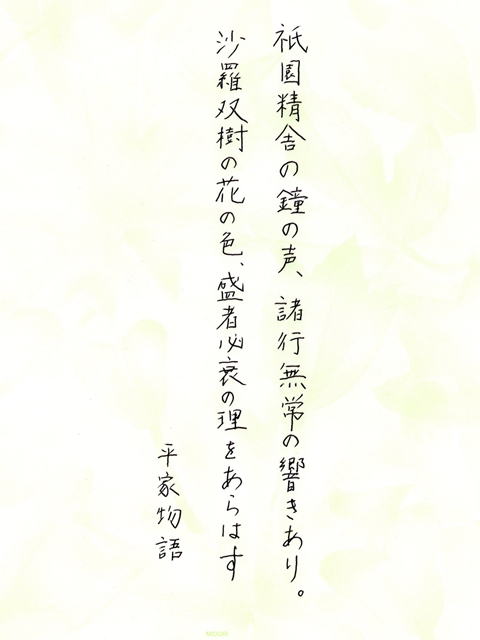 祇園精舎の鐘の声、諸行無常の響きあり。
沙羅双樹の花の色、盛者必衰の理をあらはす
平家物語